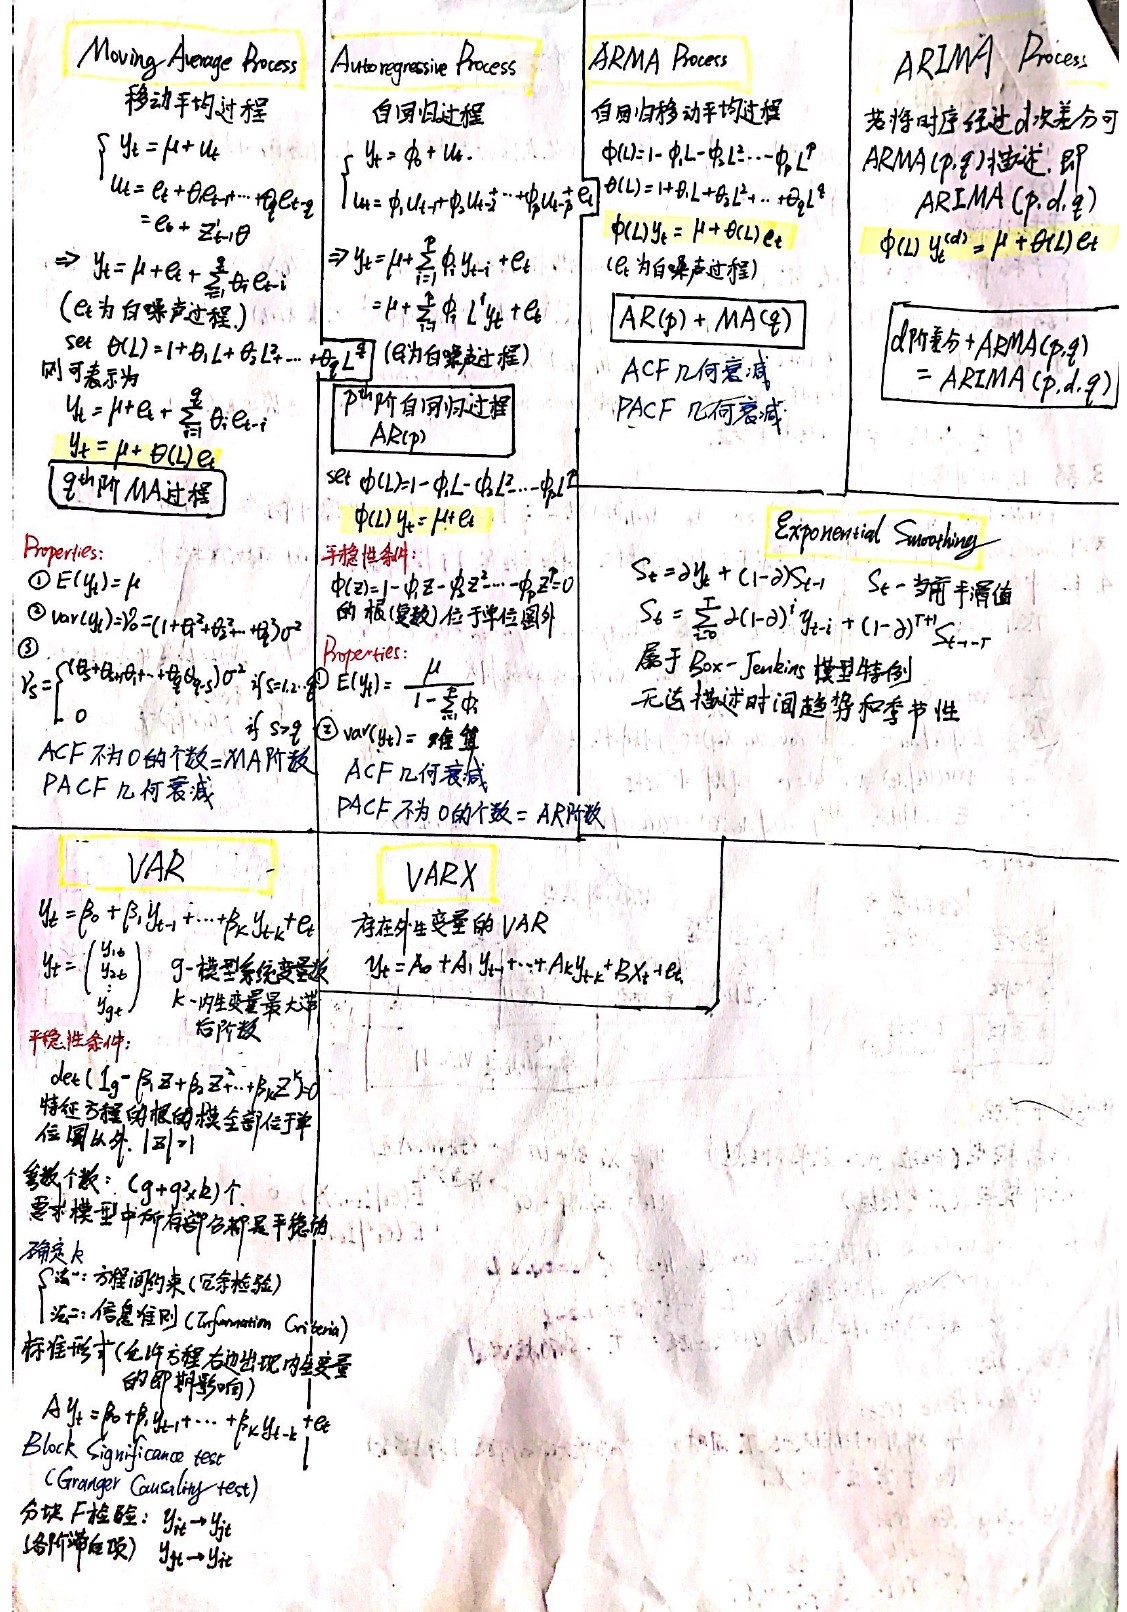 Moving Average Process
移动平均过程
{ yt = μ + ut
ut = et + θ1et-1 + ... + θqet-q
= et + Z't-1θ
⇒ yt = μ + et + Σ(i=1..q) θi et-i
(et为白噪声过程.)
set θ(L) = 1 + θ1L + θ2L² + ... + θqL^q
则可表示为
yt = μ + et + Σ(i=1..q) θi et-i
yt = μ + θ(L) et
q^th阶 MA过程
Properties:
① E(yt) = μ
② var(yt) = γ0 = (1 + θ1² + θ2² + ... + θq²)σ²
③
γs = { (θs + θs+1θ1 + ... + θqθq-s)σ² if s=1.2...q
0 if s>q
ACF 不为0的个数 = MA阶数
PACF 几何衰减
Autoregressive Process
自回归过程
{ yt = φ0 + ut.
ut = φ1ut-1 + φ2ut-2 + ... + φput-p + et
⇒ yt = μ + Σ(i=1..p) φi yt-i + et
= μ + Σ(i=1..p) φi L^i yt + et
(et为白噪声过程)
p^th阶自回归过程
AR(p)
set φ(L) = 1 - φ1L - φ2L² ... - φpL^p
φ(L) yt = μ + et
平稳性条件:
φ(z) = 1 - φ1z - φ2z² ... - φpz^p = 0
的根(复数)位于单位圆外
Properties:
① E(yt) = μ / (1 - Σ(i=1..p) φi)
② var(yt) = 难算
ACF 几何衰减
PACF 不为0的个数 = AR阶数
ARMA Process
自回归移动平均过程
φ(L) = 1 - φ1L - φ2L² ... - φpL^p
θ(L) = 1 + θ1L + θ2L² + ... + θqL^q
φ(L) yt = μ + θ(L) et
(et为白噪声过程)
AR(p) + MA(q)
ACF 几何衰减
PACF 几何衰减
ARIMA Process
若将时序经过d次差分可
ARMA(p,q)描述. 即
ARIMA (p,d,q)
φ(L) yt^(d) = μ + θ(L) et
d阶差分 + ARMA(p,q)
= ARIMA (p,d,q)
Exponential Smoothing
St = ∂yt + (1-∂)St-1 St - 当前平滑值
St = Σ(i=0..T) ∂(1-∂)^i yt-i + (1-∂)^T+1 St-1-T
属于 Box-Jenkins 模型特例
无法描述时间趋势和季节性
VAR
yt = β0 + β1yt-1 + ... + βkyt-k + et
yt = (y1t y2t ⋮ ygt) g - 模型系统变量数
k - 内生变量最大滞
后阶数
平稳性条件:
det(Ig - β1z + β2z² + ... + βkz^k) = 0
特征方程的根的模全部位于单
位圆以外. |z|>1
参数个数: (g + g²×k)个
要求模型中所有部分都是平稳的
确定k
{ 法一: 方程间约束(冗余检验)
法二: 信息准则 (Information Criteria)
标准形式(允许方程右边出现内生变量
的即期影响)
A yt = β0 + β1yt-1 + ... + βkyt-k + et
Block Significance test
(Granger Causality test)
分块F检验: yit → yjt
(各阶滞后项) yjt → yit
VARX
存在外生变量的VAR
yt = A0 + A1 yt-1 + ... + Akyt-k + BXt + et